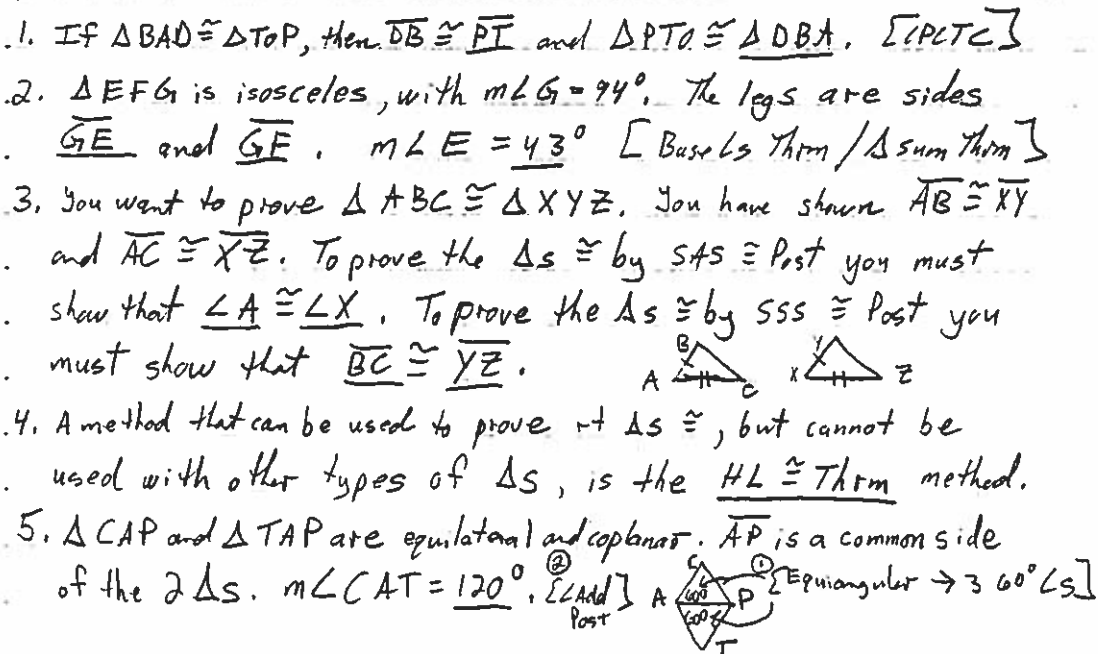 .1. If ΔBAD ≅ ΔTOP, then DB ≅ PT and ΔPTO ≅ ΔDBA. [CPCTC]
.2. ΔEFG is isosceles, with m∠G = 94°. The legs are sides
. GE and GF. m∠E = 43° [Base ∠s Thrm / Δ sum Thrm]
.3. You want to prove ΔABC ≅ ΔXYZ. You have shown AB ≅ XY
. and AC ≅ XZ. To prove the Δs ≅ by SAS ≅ Post you must
. show that ∠A ≅ ∠X. To prove the Δs ≅ by SSS ≅ Post you
. must show that BC ≅ YZ.
B Y
A C X Z
.4. A method that can be used to prove rt Δs ≅, but cannot be
. used with other types of Δs, is the HL ≅ Thrm method.
.5. ΔCAP and ΔTAP are equilateral and coplanar. AP is a common side
of the 2 Δs. m∠CAT = 120°. ② [∠Add Post] ① [Equiangular → 3 60° ∠s]
C
A 60° P
60°
T